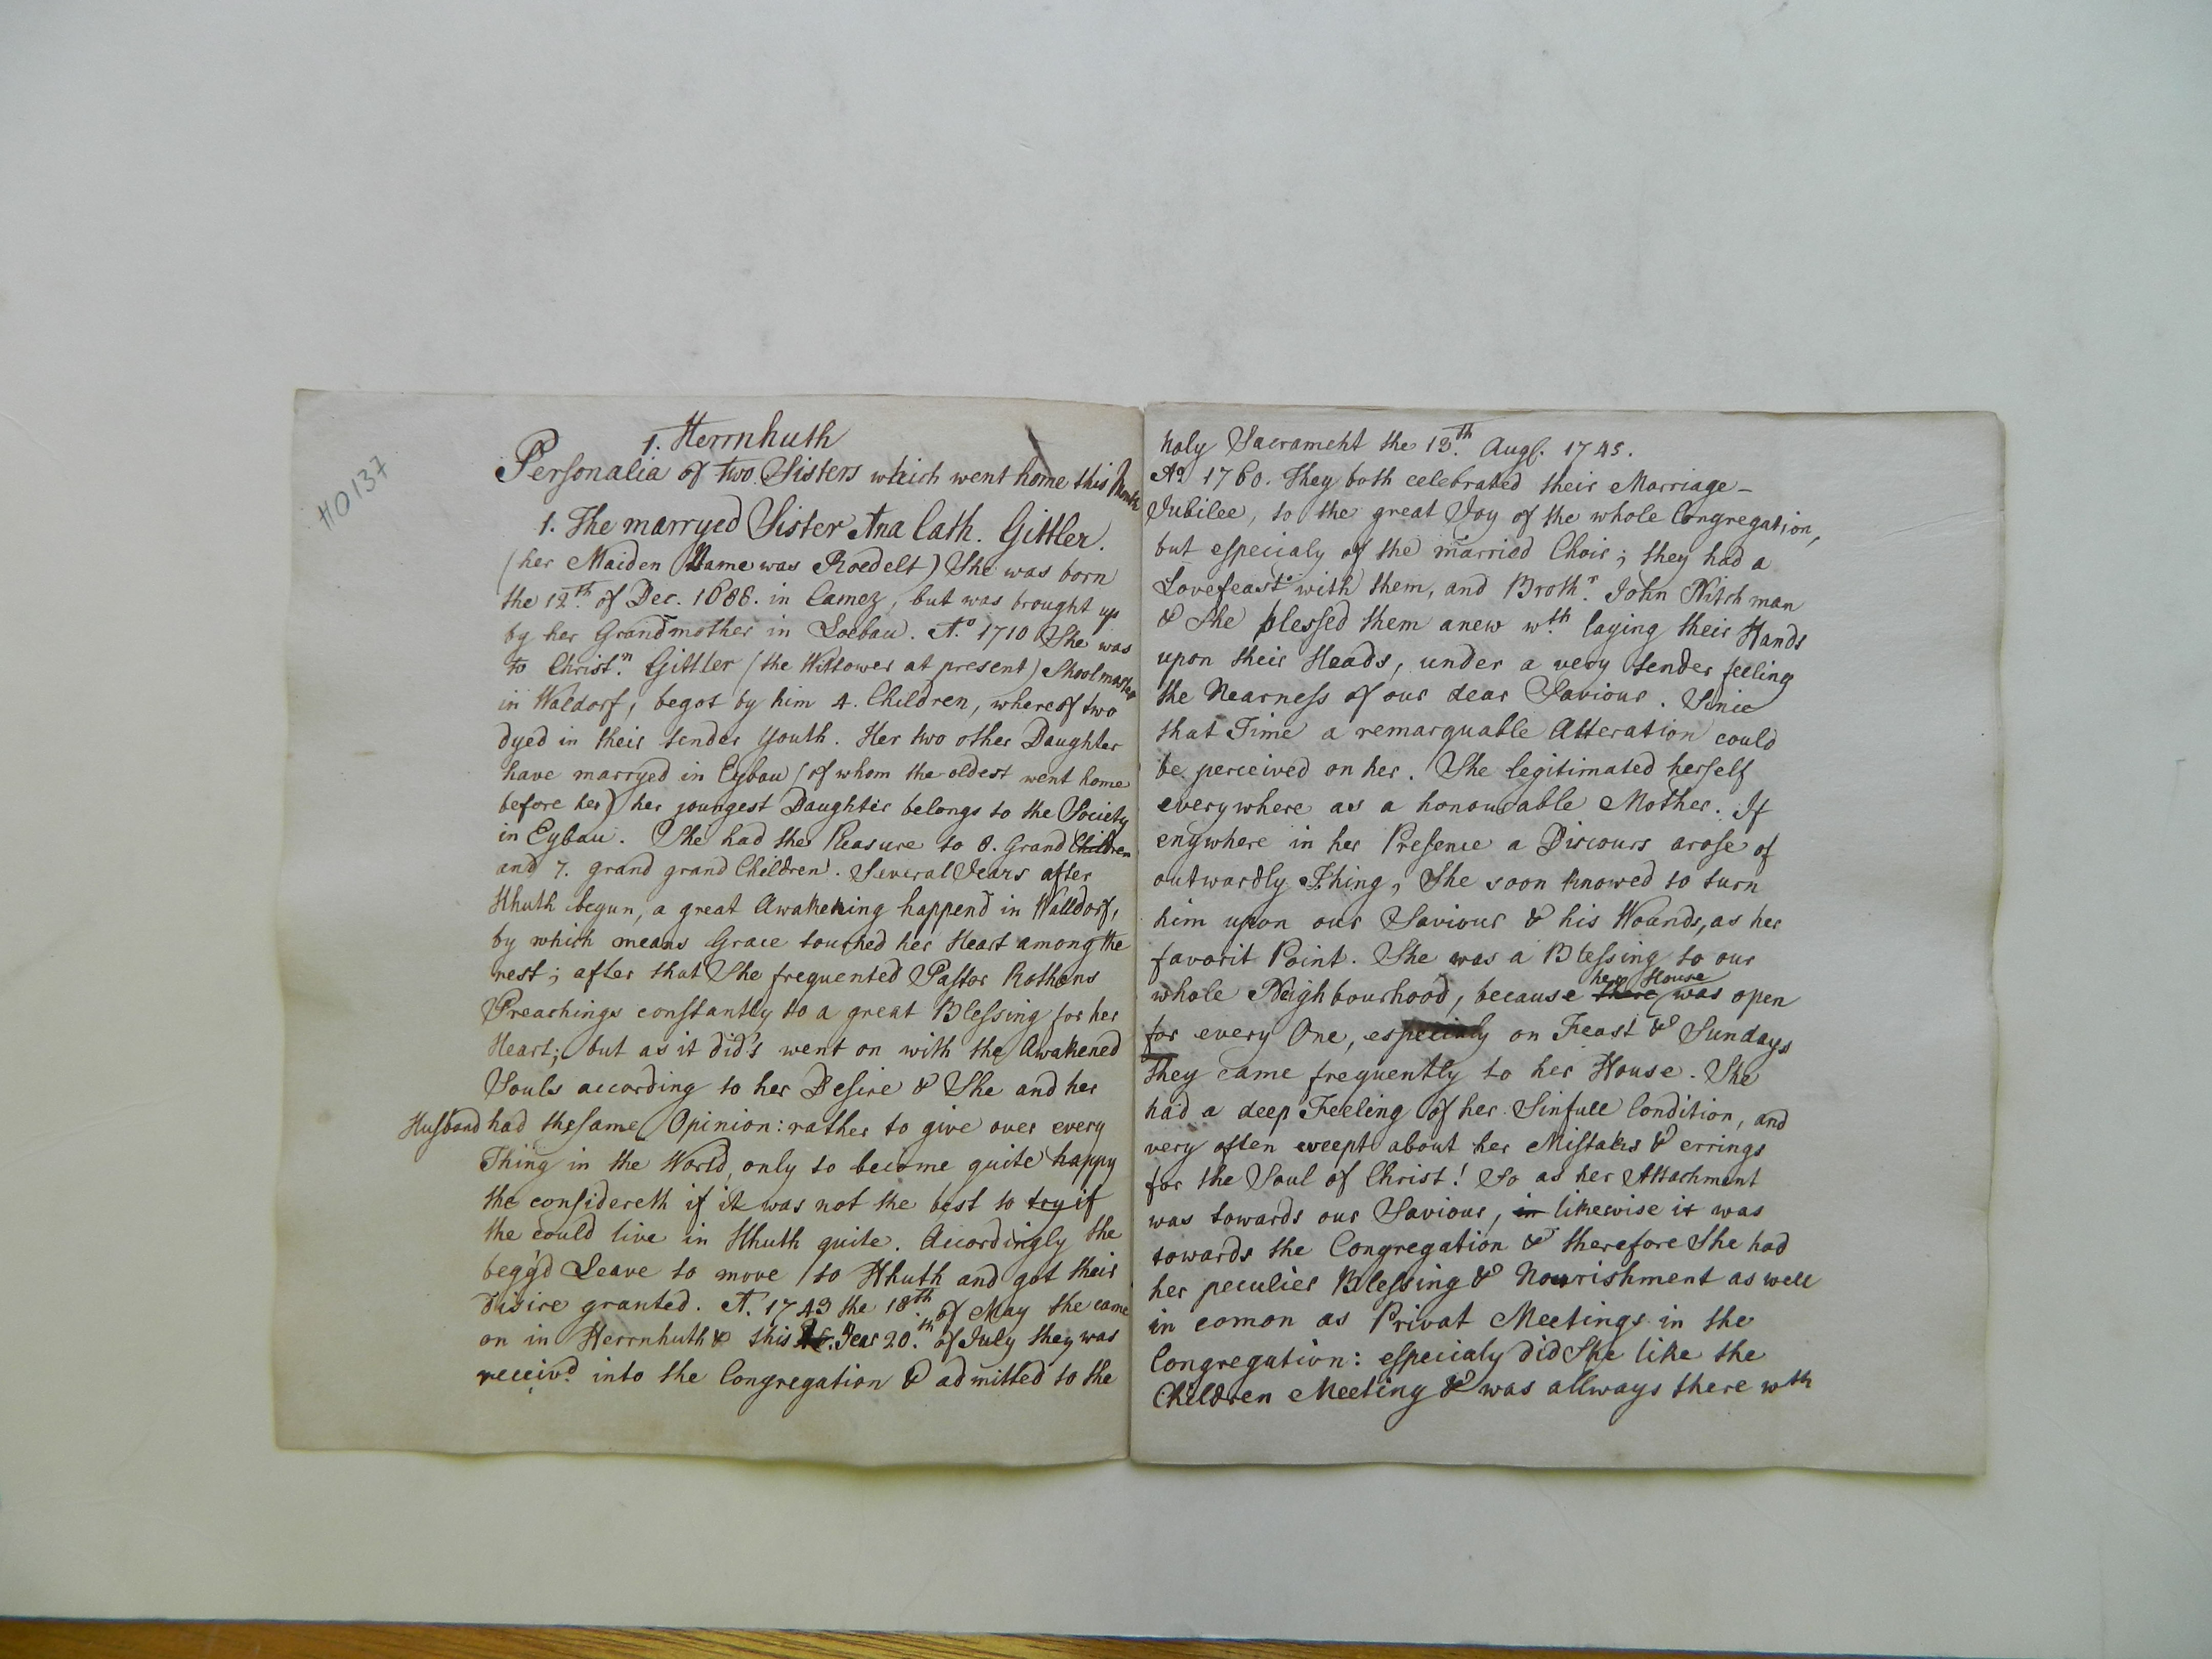 HO137
1. Herrnhuth
Personalia of two Sisters which went home this Month
1. The marryed Sister Ana Cath. Gittler.
(her Maiden Name was Roedelt) She was born
the 12th. of Dec. 1688. in Camez, but was brought up
by her Grandmother in Loebau. A.o 1710 She was
to Christ.n Gittler (the Wittower at present) Skoolmaster
in Waldorf, begot by him 4. Children, whereof two
dyed in their tender Youth. Her two other Daughter
have marryed in Eybau (of whom the oldest went home
before her) her youngest Daughter belongs to the Society
in Eybau. She had the Pleasure to 8. Grand Children
and 7. grand grand Children. Several Jears after
Hhuth begun, a great Awakening happend in Walldorf,
by which means Grace touched her Heart among the
rest; after that She frequented Pastor Rothens
Preachings constantly to a great Blessing for her
Heart; but as it did's went on with the Awakened
Souls according to her Desire & She and her
Husband had thesame Opinion: rather to give over every
Thing in the World, only to become quite happy
the considereth if it was not the best to try if
the could live in Hhuth quite. Accordingly the
begg'd Leave to move to Hhuth and got their
Disire granted. A. 1743 the 18th. of May the came
on in Herrnhuth & this Jear 20.th of July they was
receiv.d into the Congregation & admitted to the
holy Sacrament the 13th. Aug. 1745.
Ao 1760. They both celebrated their Marriage-
Jubilee, to the great Joy of the whole Congregation,
but especialy of the married Choir; they had a
Lovefeast with them, and Broth.r John Nitchman
& She blessed them anew w.th laying their Hands
upon their Heads, under a very tender feeling
the Nearness of our dear Saviour. Sinie
that Time a remarquable Alteration could
be perceived on her. She legitimated herself
everywhere as a honourable Mother. If
enywhere in her Presence a Discours arose of
outwardly Thing, She soon knowed to turn
him upon our Saviour & his Wounds, as her
favorit Point. She was a Blessing to our
her House
whole Neighbourhood, because there was open
for every One, especialy on Feast & Sundays
they came frequently to her House. She
had a deep Feeling of her Sinfull Condition, and
very often weept about her Mistakes & errings
for the Soul of Christ! So as her Attachment
was towards our Saviour, in likewise it was
towards the Congregation & therefore She had
her peculier Blessing & Nourishment as well
in comon as Privat Meetings in the
Congregation: especialy did She like the
Children Meeting & was allways there wth